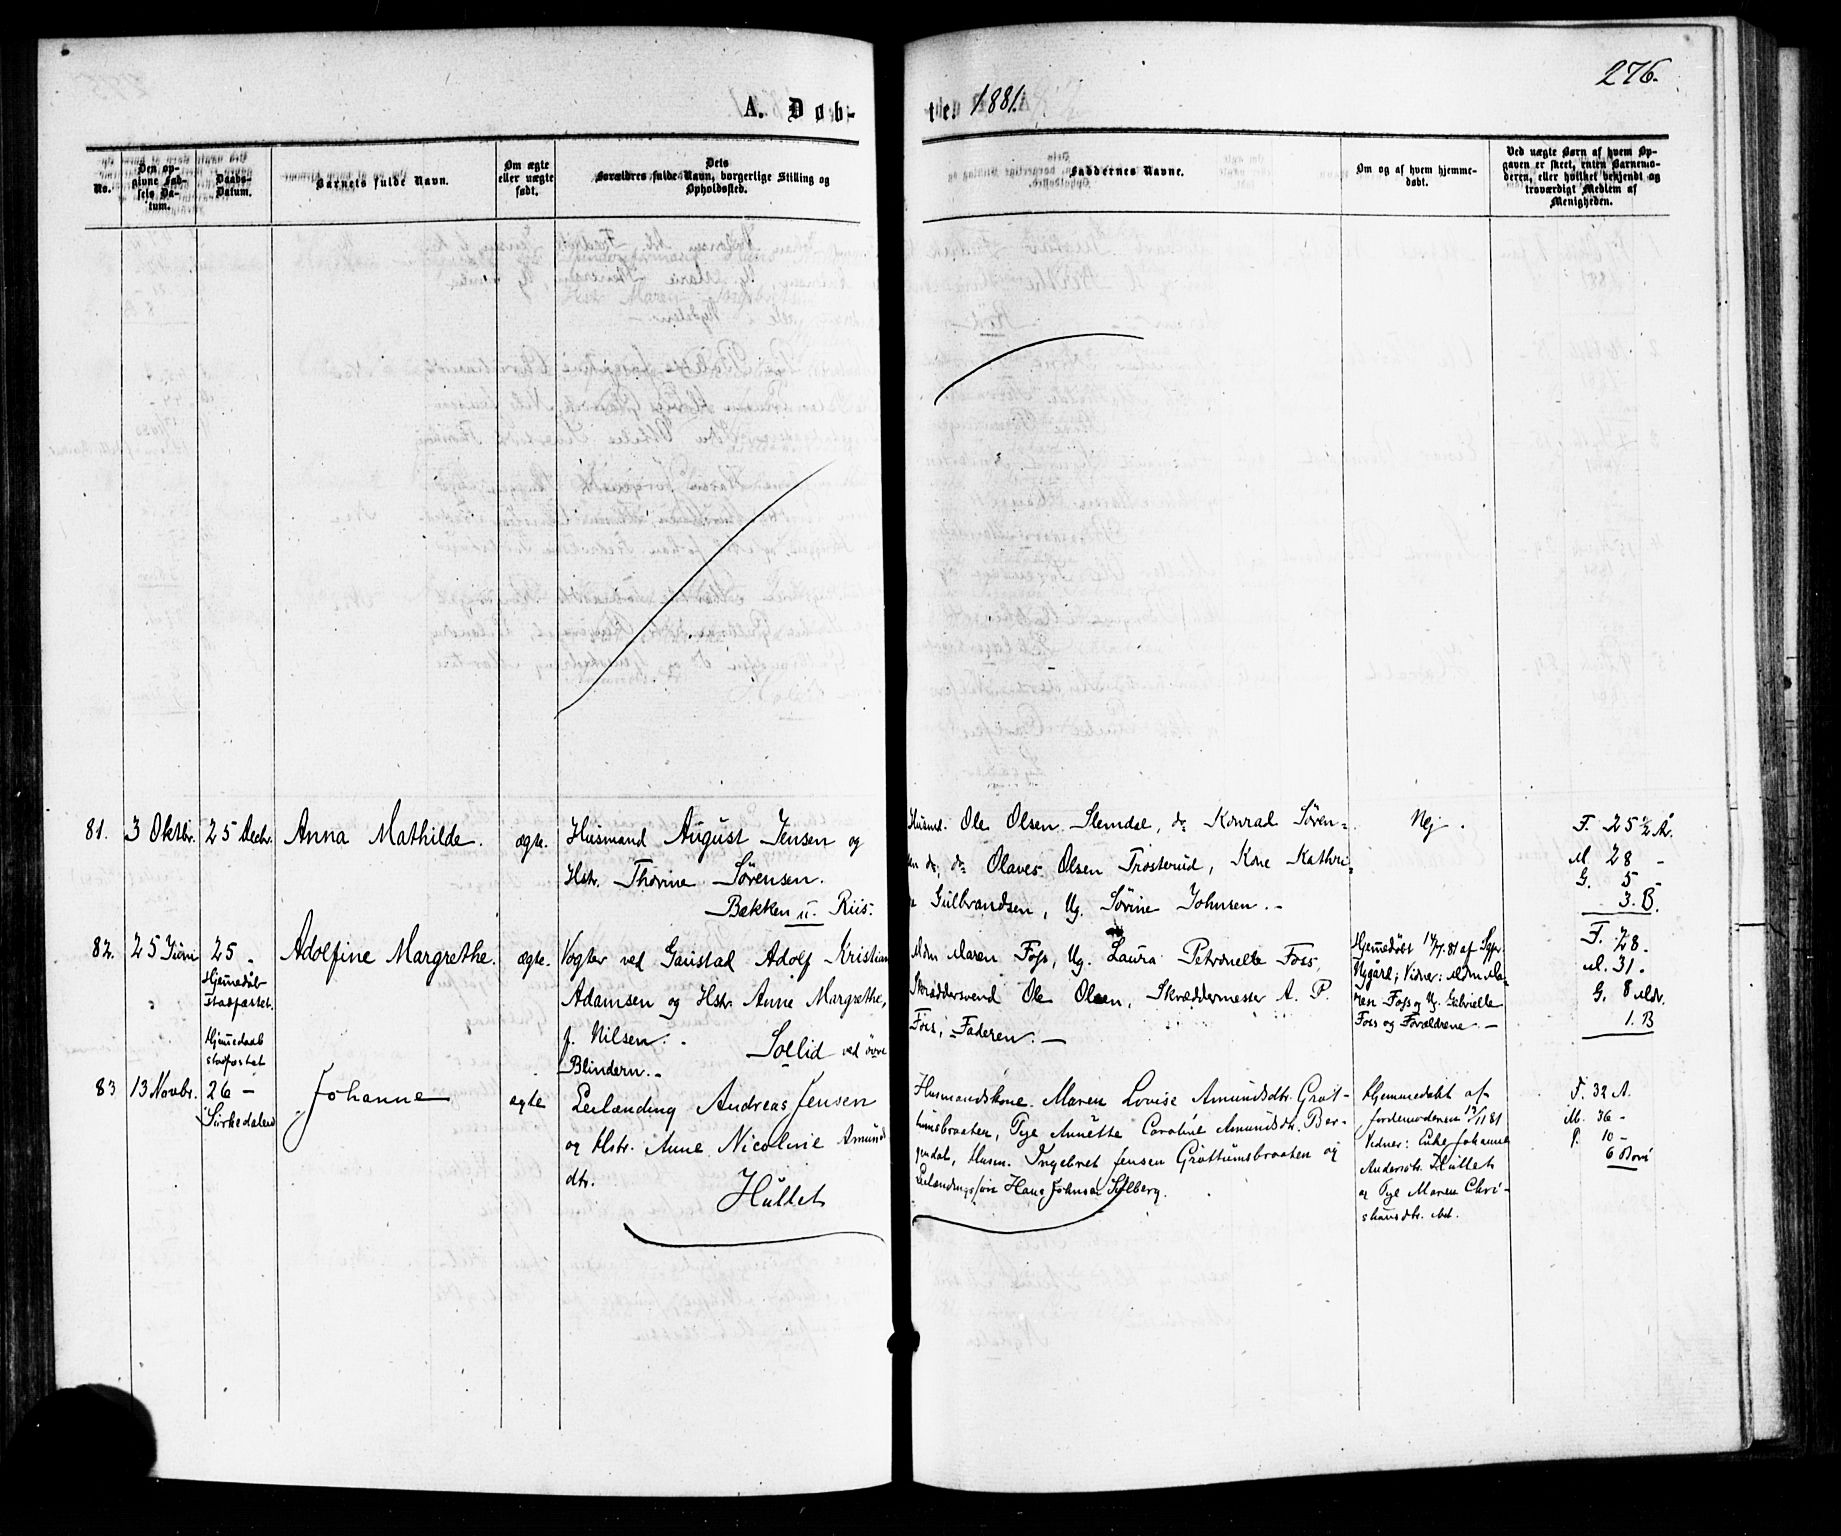 276.
A. Døb-
te. 1881.
No.
Den op-
givne Fød-
sels Da-
tum.
Daabs-
Datum.
Barnets fulde Navn.
Om ægte
eller uægte
født.
Dets
Forældres fulde Navn, borgerlige Stilling og
Opholdssted.
Faddernes Navne.
Om og af hvem hjemme-
døbt.
Ved uægte Børn af hvem Op-
gaven er skeet, enten Barnemo-
deren, eller hvilket bekjendt og
troværdigt Medlem af
Menigheden.
81. 3 Oktbr. 25 Decbr. Anna Mathilde. ægte. Husmand August Jensen og
Hstr. Thorine Sørensen.
Bakken u. Riis.
Husmd. Ole Olsen Slemdal, do Konrad Sören-
sen do, do Olaves Olsen Trosterud, Kone Kathri-
Gulbrandsen, Ug. Sörine Johnsen.
Nej.
F. 25 1/2 År
M. 28 -
G. 5 -
3. B.
82. 25 Juni 25 - Adolfine Margrethe. ægte. Vogter ved Gaustad Adolf Kristian
Hjemmedåb
stadfæstet.
Adamsen og Hstr. Anne Margrethe,
f. Nilsen. Sollid ved övre
Blindern.
Mdm Maren Foss, Ug. Laura Petronelle Foss,
Skræddersvend Ole Olsen, Skræddermester A. P.
Foss, Faderen.
Hjemmedöbt 14/7. 81 af Sgpr.
Nygård; Vidner: Mdm Ma-
ren Foss og Ug. Gabrielle
Foss og Forældrene.
F. 28 -
M. 31.
G. 8 Mdr.
1. B
Hjemmedaab
stadfæstet
83 13 Novbr. 26 - Johanne ægte Leilænding Andreas Jensen
Sörkedalen
og Hstr. Anne Nicoline Amunds
dtr.
Hullet
Husmandskone Maren Lovise Amundsdtr. Grøt-
tumsbraaten, Pige Annette Caroline Amundsdtr. Ber-
gendal, Husm. Ingebret Jensen Grøttumsbraaten og
Leilændingssøn Hans Johnsen Solberg.
Hjemmedøbt af
Jordemoderen 19/11 81
Vidner: Enke Johanne
Andersdtr. Hullet
og Pige Maren Chri-
stiansdtr. ibd.
F. 32 A.
M. 36 -
P. 10 -
6 Børn